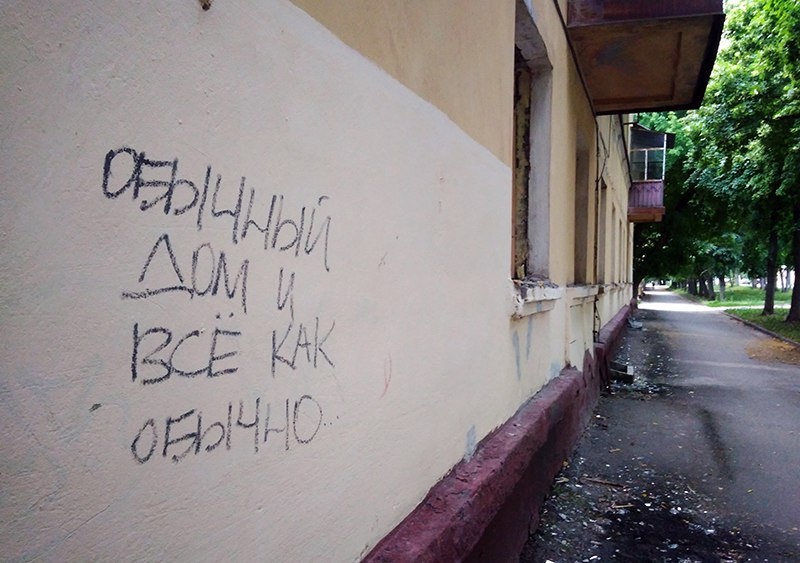 ОБЫЧНЫЙ
ДОМ И
ВСЁ КАК
ОБЫЧНО...